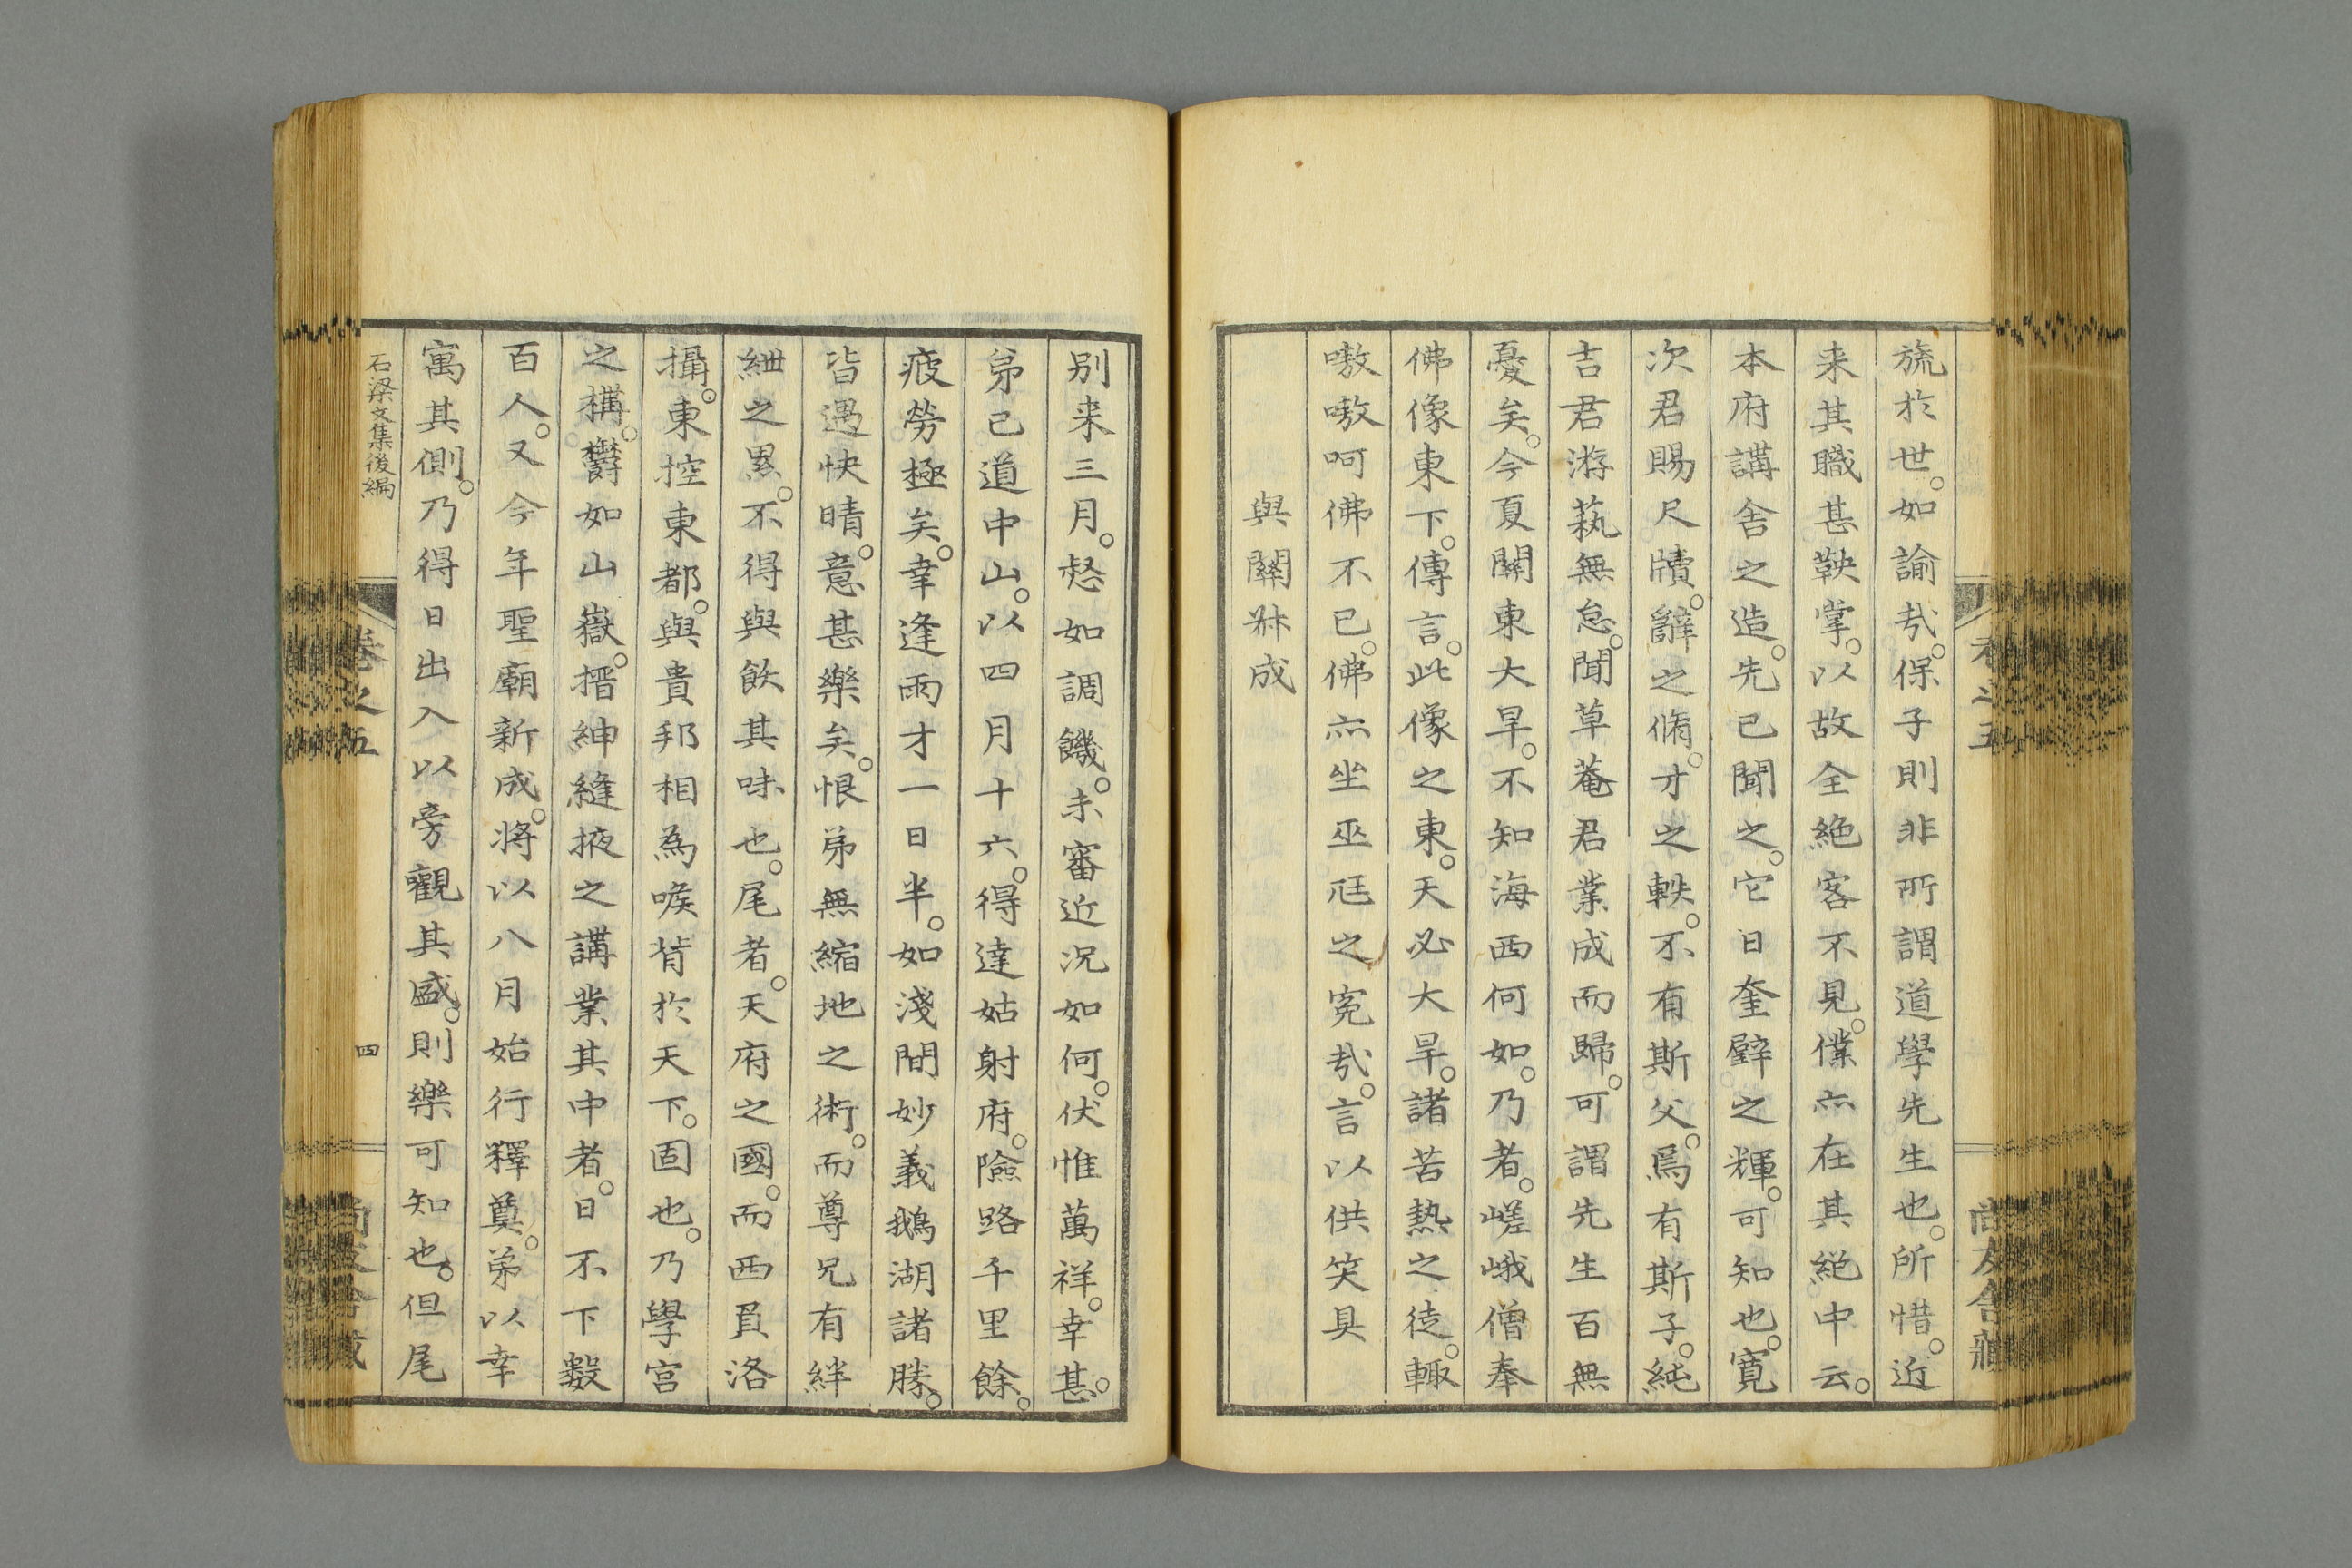 旒於世。如諭哉。保子則非所謂道學先生也。所惜。近
来其職甚鞅掌。以故全絶客不見。僕亦在其絕中云。
本府講舍之造。先已聞之。它日奎壁之輝。可知也。寛
次君賜尺牘。辭之脩。才之軼。不有斯父。爲有斯子。純
吉君游藝無怠。聞草菴君業成而歸。可謂先生百無
憂矣。今夏關東大旱。不知海西何如。乃者。嵯峨僧奉
佛像東下。傳言。此像之東。天必大旱。諸苦熱之徒。輙
嗷嗷呵佛不已。佛亦坐巫尫之寃哉。言以供笑具
與關叔成
别来三月。惄如調饑。未審近況如何。伏惟萬祥。幸甚。
弟已道中山。以四月十六。得達姑射府。險路千里餘。
疲勞極矣。幸逢雨才一日半。如淺間妙義鵝湖諸勝。
皆遇快晴。意甚樂矣。恨弟無縮地之術。而尊兄有絆
紲之累。不得與飲其味也。尾者。天府之國。而西負洛
攝。東控東都。與貴邦相為喉背於天下。固也。乃學宮
之構。欝如山嶽。搢紳縫掖之講業其中者。日不下數
百人。又今年聖廟新成。将以八月始行釋奠。弟以幸
寓其側。乃得日出入以旁觀其盛。則樂可知也。但尾
石梁文集後編
卷之五
四
尚友舍藏